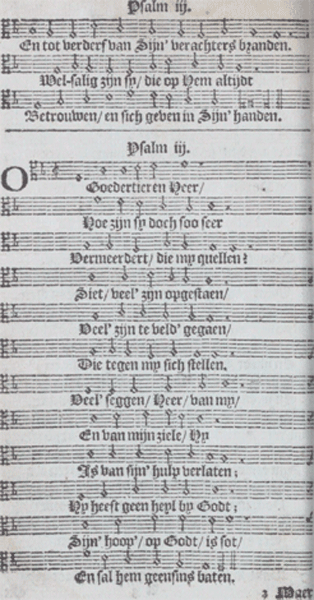 Psalm iij.
En tot verderf van Sijn' verachters branden.
Wel-salig zijn sy/ die op Hem altijdt
Betrouwen/ en sich geven in Sijn' handen.
Psalm iij.
O Goedertieren Heer/
Hoe zijn sy doch soo seer
Vermeerdert/ die my quellen?
Siet/ veel' zijn opgestaen/
Veel' zijn te veld' gegaen/
Die tegen my sich stellen.
Veel' seggen/ Heer/ van my/
En van mijn ziele/ Hy
Is van sijn' hulp verlaten;
Hy heeft geen heyl by Godt;
Sijn' hoop'/ op Godt/ is sot/
En sal hem geensins baten.
2 Maer